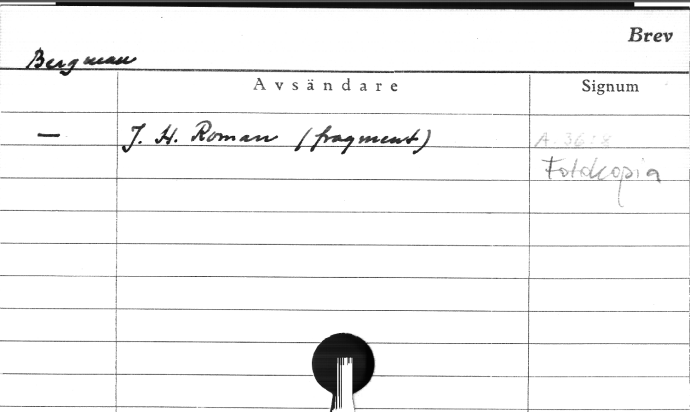 Brev
Bergman
Avsändare Signum
— J. H. Roman (fragment) A. 36:8
Fotokopia